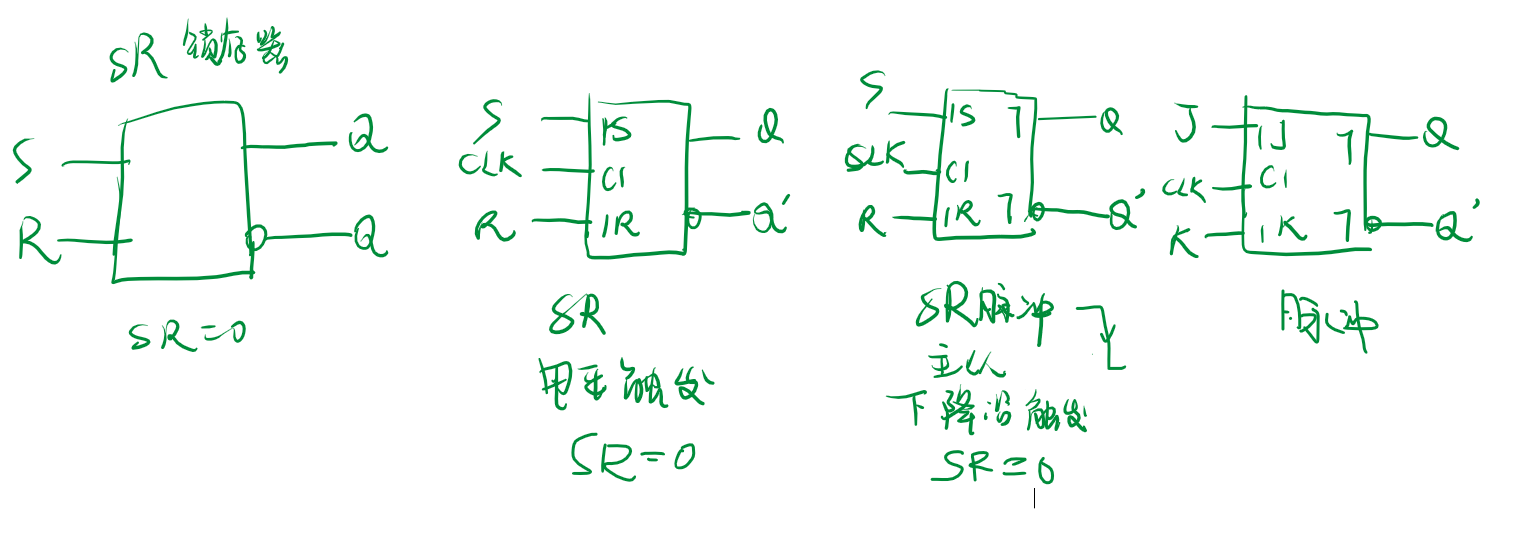 SR 锁存器
S
R
Q
Q
SR=0
S
CLK
R
1S
C1
1R
Q
Q'
SR
电平触发
SR=0
S
CLK
R
1S ㄱ
C1
1R ㄱ
Q
Q'
SR脉冲
主从
下降沿触发
SR=0
J
CLK
K
1J ㄱ
C1
1K ㄱ
Q
Q'
脉冲